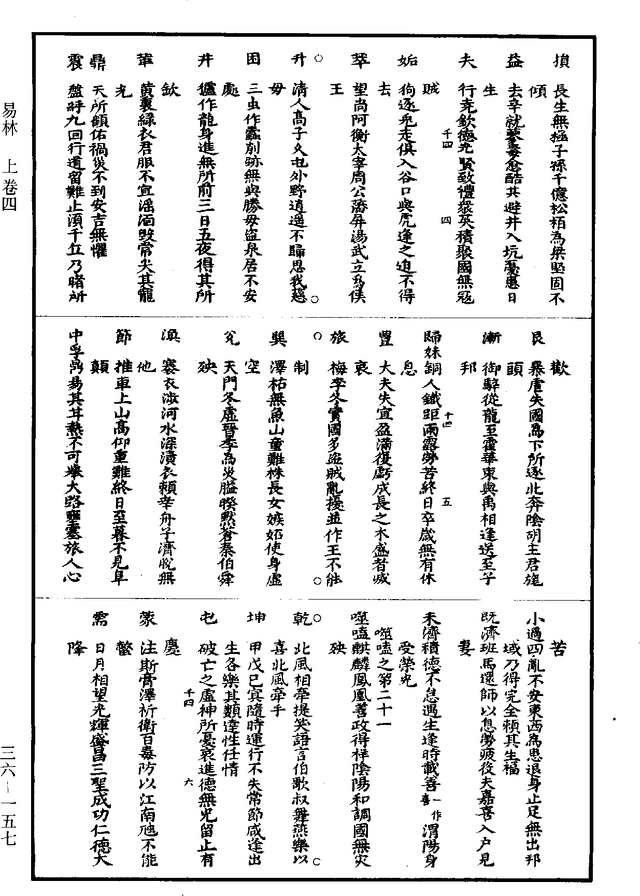 易林 上 卷四
三六—一五七
損 長生無極子孫千億松柏為梁堅固不
傾
益 去辛就蓼毒愈酷甚避井入坑憂患日
生
夬 行堯欽德光賢致禮眾英積聚國無寇
賊
姤 狗逐兔走俱入谷口與虎逢之迫不得
去
萃 望尚阿衡太宰周公藩屏湯武立為侯
王
升 清人高子久屯外野逍遙不歸思我慈
母
困 三虫作蠱削跡無與勝母盜泉居不安
處
井 儷作龍身進無所前三日五夜得其所
欽
革 黃裏綠衣君服不宜淫湎毀常失其寵
光
鼎 天所顧佑禍災不到安吉無懼
震 盤紆九回行道留難止須千丘乃睹所
歡
艮 暴虐失國為下所逐北奔陰胡主君旄
頭
漸 御騂從龍至霍華東與禹相逢送至子
邦
歸妹 銅人鐵距雨露勞苦終日卒歲無有休
息
豐 大夫失宜盈滿復虧成長之木盛者哀
哀
旅 梅李冬實國多盜賊亂擾並作王不能
制
巽 澤枯無魚山童難株長女嫉妬使身虛
空
兌 天門冬虛晉季為災朦䁶黙蒼秦伯舜
殃
渙 褰衣涉河水深漬衣賴幸舟子濟脫無
他
節 推車上山高仰重難終日至暮不見阜
顛
中孚 鼎易其耳熱不可舉大路壅塞旅人心
苦
小過 四亂不安東西為患退身止足無出邦
域乃得完全賴其生福
既濟 班馬還師以息勞疲役夫嘉喜入户見
妻
未濟 積德不怠遇主逢時載喜一作喜渭陽身
受榮光
噬嗑之第二十一
噬嗑 麒麟鳳凰善政得祥陰陽和調國無灾
殃
乾 北風相牽提笑語言伯歌叔舞燕樂以
喜北風牽手
坤 甲戊己寅隨時運行不失常節咸逢出
生各樂其類達性任情
屯 破亡之虛神所憂哀進德無光留止有
慶
蒙 注斯膏澤扞衛百毒防以江南虺不能
螫
需 日月相望光輝盛昌三聖成功仁德大
降